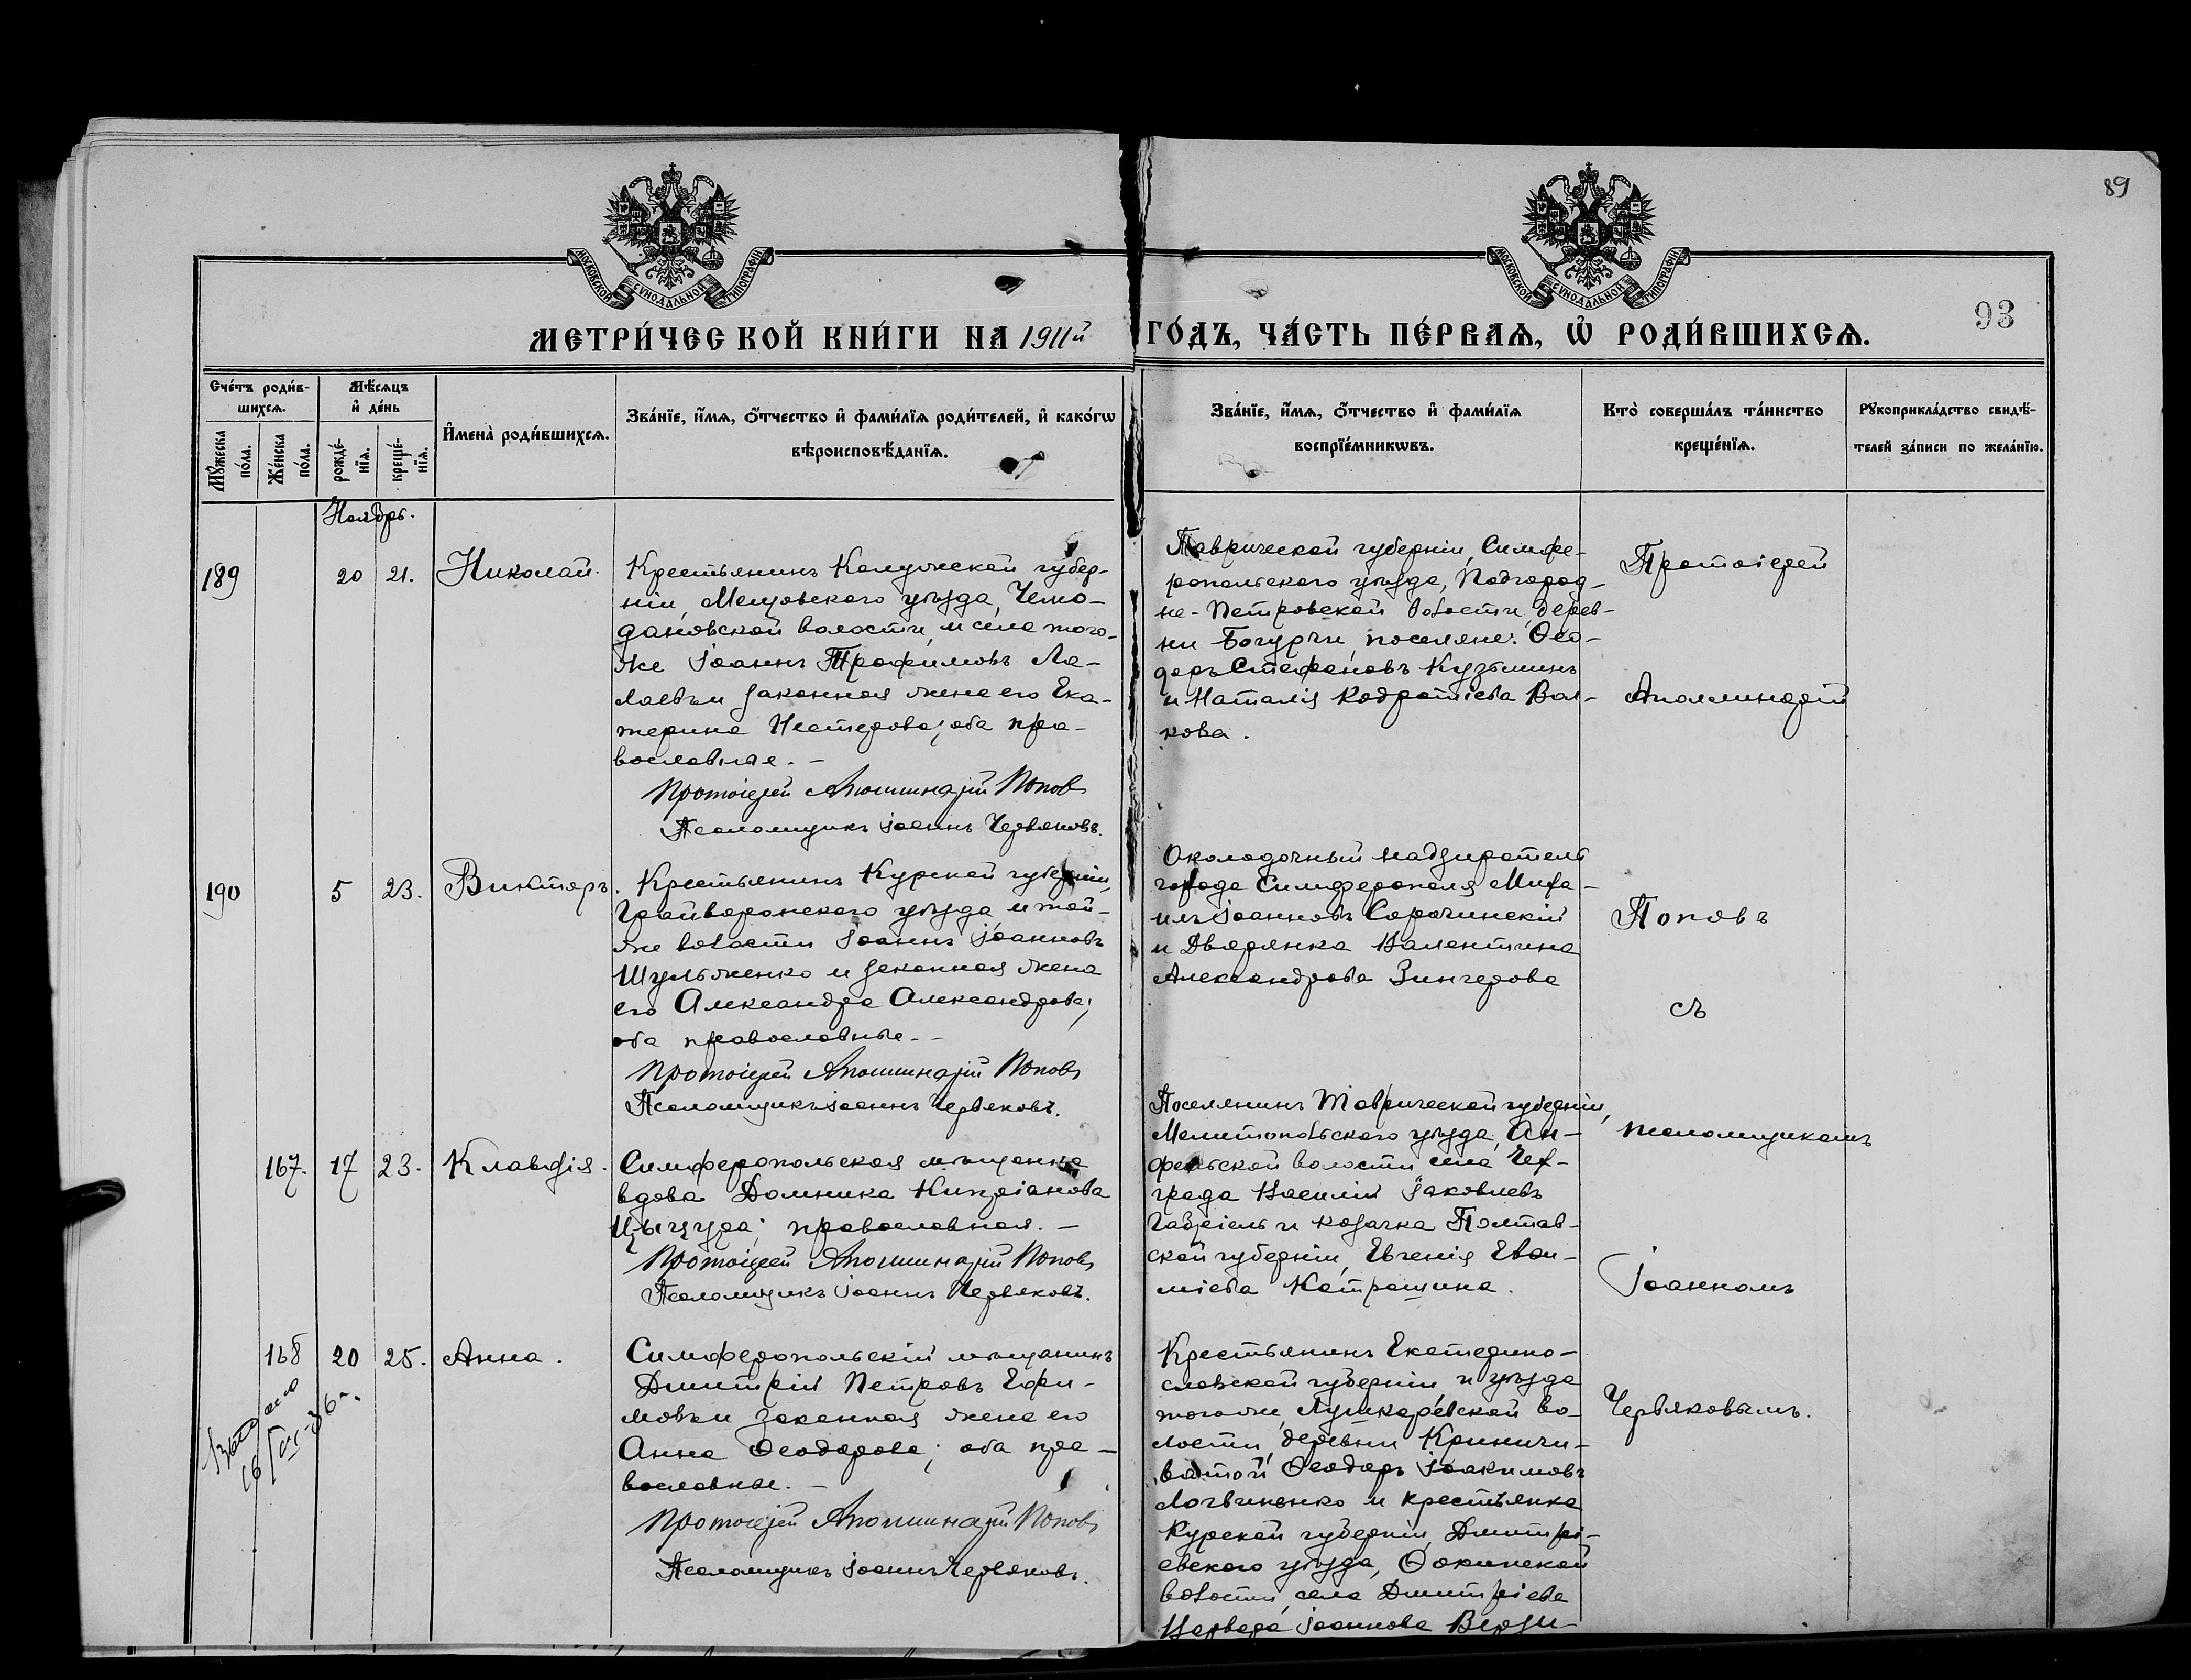 89
МОСКОВСКОЙ СУНОДАЛЬНОЙ ТИПОГРАФІИ.
МОСКОВСКОЙ СУНОДАЛЬНОЙ ТИПОГРАФІИ.
93
МЕТРИ́ЧЕСКОЙ КНИ́ГИ НА 1911й ГО́ДЪ, ЧА́СТЬ ПЕ́РВАѦ, Ѡ҆ РОДИ́ВШИХСѦ.
Сче́тъ роди́в-
шихсѧ.
Мѣ́сѧцъ
и҆ де́нь
Мꙋ́жеска по́ла.
Же́нска по́ла.
рожде́-
нїѧ.
креще́-
нїѧ.
И҆мена̀ роди́вшихсѧ.
Зва́нїе, и҆́мѧ, ѻ҆́тчество и҆ фами́лїѧ роди́телей, и҆ како́гѡ
вѣроисповѣ́данїѧ.
Зва́нїе, и҆́мѧ, ѻ҆́тчество и҆ фами́лїѧ
воспрїе́мникѡвъ.
Кто̀ соверша́лъ та́инство
креще́нїѧ.
Рꙋкоприкла́дство свидѣ́-
телей за́писи по жела́нїю.
Ноябрь.
189
20
21.
Николай.
Крестьянинъ Калужской губер-
ніи, Мещовскаго уѣзда, Чемо-
дановской волости, и села того-
же Іоаннъ Трофимовъ Ла-
лаевъ и законная жена его Ека-
терина Нестерова; оба пра-
вославные. –
Протоіерей Аполлинарій Поповъ
Псаломщикъ Іоаннъ Червяковъ.
Таврической губерніи, Симфе-
ропольскаго уѣзда, Подгород-
не-Петровской волости, дерев-
ни Богурчи, поселяне: Ѳео-
доръ Стефановъ Кузьминъ
и Наталія Кодратіева Вол-
кова.
Протоіерей
Аполлинарій
190
5
23.
Викторъ.
Крестьянинъ Курской губерніи,
Грайворонскаго уѣзда, и той-
же волости Іоаннъ Іоанновъ
Шульженко и законная жена
его Александра Александрова;
оба православные. –
Протоіерей Аполлинарій Поповъ
Псаломщикъ Іоаннъ Червяковъ.
Околодочный надзиратель
города Симферополя Миха-
илъ Іоанновъ Сорочинскій
и Дворянка Валентина
Александрова Зингерова
Поповъ
съ
167.
17
23.
Клавдія.
Симферопольская мѣщанка
вдова Домника Кипріанова
Цыцура; православная. –
Протоіерей Аполлинарій Поповъ
Псаломщикъ Іоаннъ Червяковъ.
Поселянинъ Таврической губерніи,
Мелитопольскаго уѣзда,
волости села Чех-
града Василій Яковлевъ
Габріель и козачка Полтав-
ской губерніи, Евгенія
міева Катрашина.
псаломщикомъ
Іоанномъ
168
20
25.
Анна.
Симферопольскій мѣщанинъ
Димитрій Петровъ Ефи-
мовъ и законная жена его
Анна Ѳеодорова; оба пра-
вославные. –
Протоіерей Аполлинарій Поповъ
Псаломщикъ Іоаннъ Червяковъ.
Крестьянинъ Екатерино-
славской губерніи и уѣзда
тогоже, Лушкаревской во-
лости, деревни Криничи-
ватой Ѳеодоръ Іоакимовъ
Логвиненко и крестьянка
Курской губерніи, Димитрі-
евскаго уѣзда, Ѳокинской
волости, села Димитріева
Варвара Іоаннова
Червяковымъ.
16/VI-36 г.